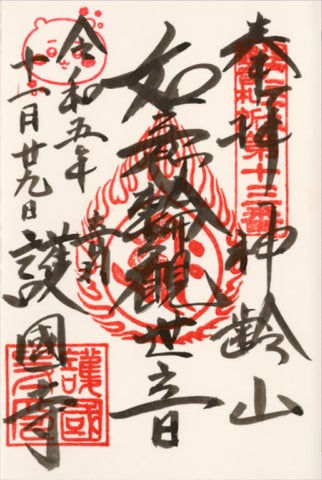 奉拝 神齢山
第十三番
如意輪観世音
令和五年
十一月廿九日
護國寺
護國